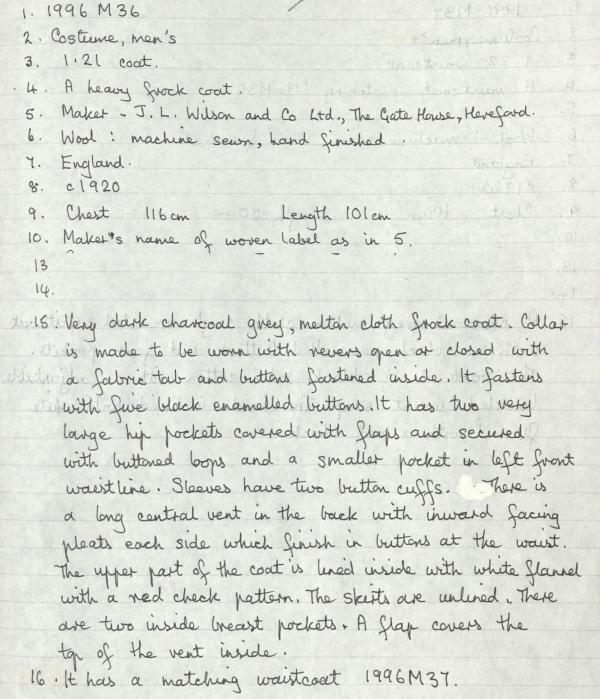 1. 1996 M36
2. Costume, men's
3. 1.21 coat.
4. A heavy frock coat.
5. Maker - J.L. Wilson and Co Ltd., The Gate House, Hereford.
6. Wool : machine sewn, hand finished.
7. England.
8. c1920
9. Chest 116cm Length 101cm
10. Maker's name of woven label as in 5.
13
14.
15. Very dark charcoal grey, melton cloth frock coat. Collar
is made to be worn with revers open or closed with
a fabric tab and buttons fastened inside. It fastens
with five black enamelled buttons. It has two very
large hip pockets covered with flaps and secured
with buttoned loops and a smaller pocket in left front
waistline. Sleeves have two button cuffs. There is
a long central vent in the back with inward facing
pleats each side which finish in buttons at the waist.
The upper part of the coat is lined inside with white flannel
with a red check pattern. The skirts are unlined. There
are two inside breast pockets. A flap covers the
top of the vent inside.
16. It has a matching waistcoat 1996M37.